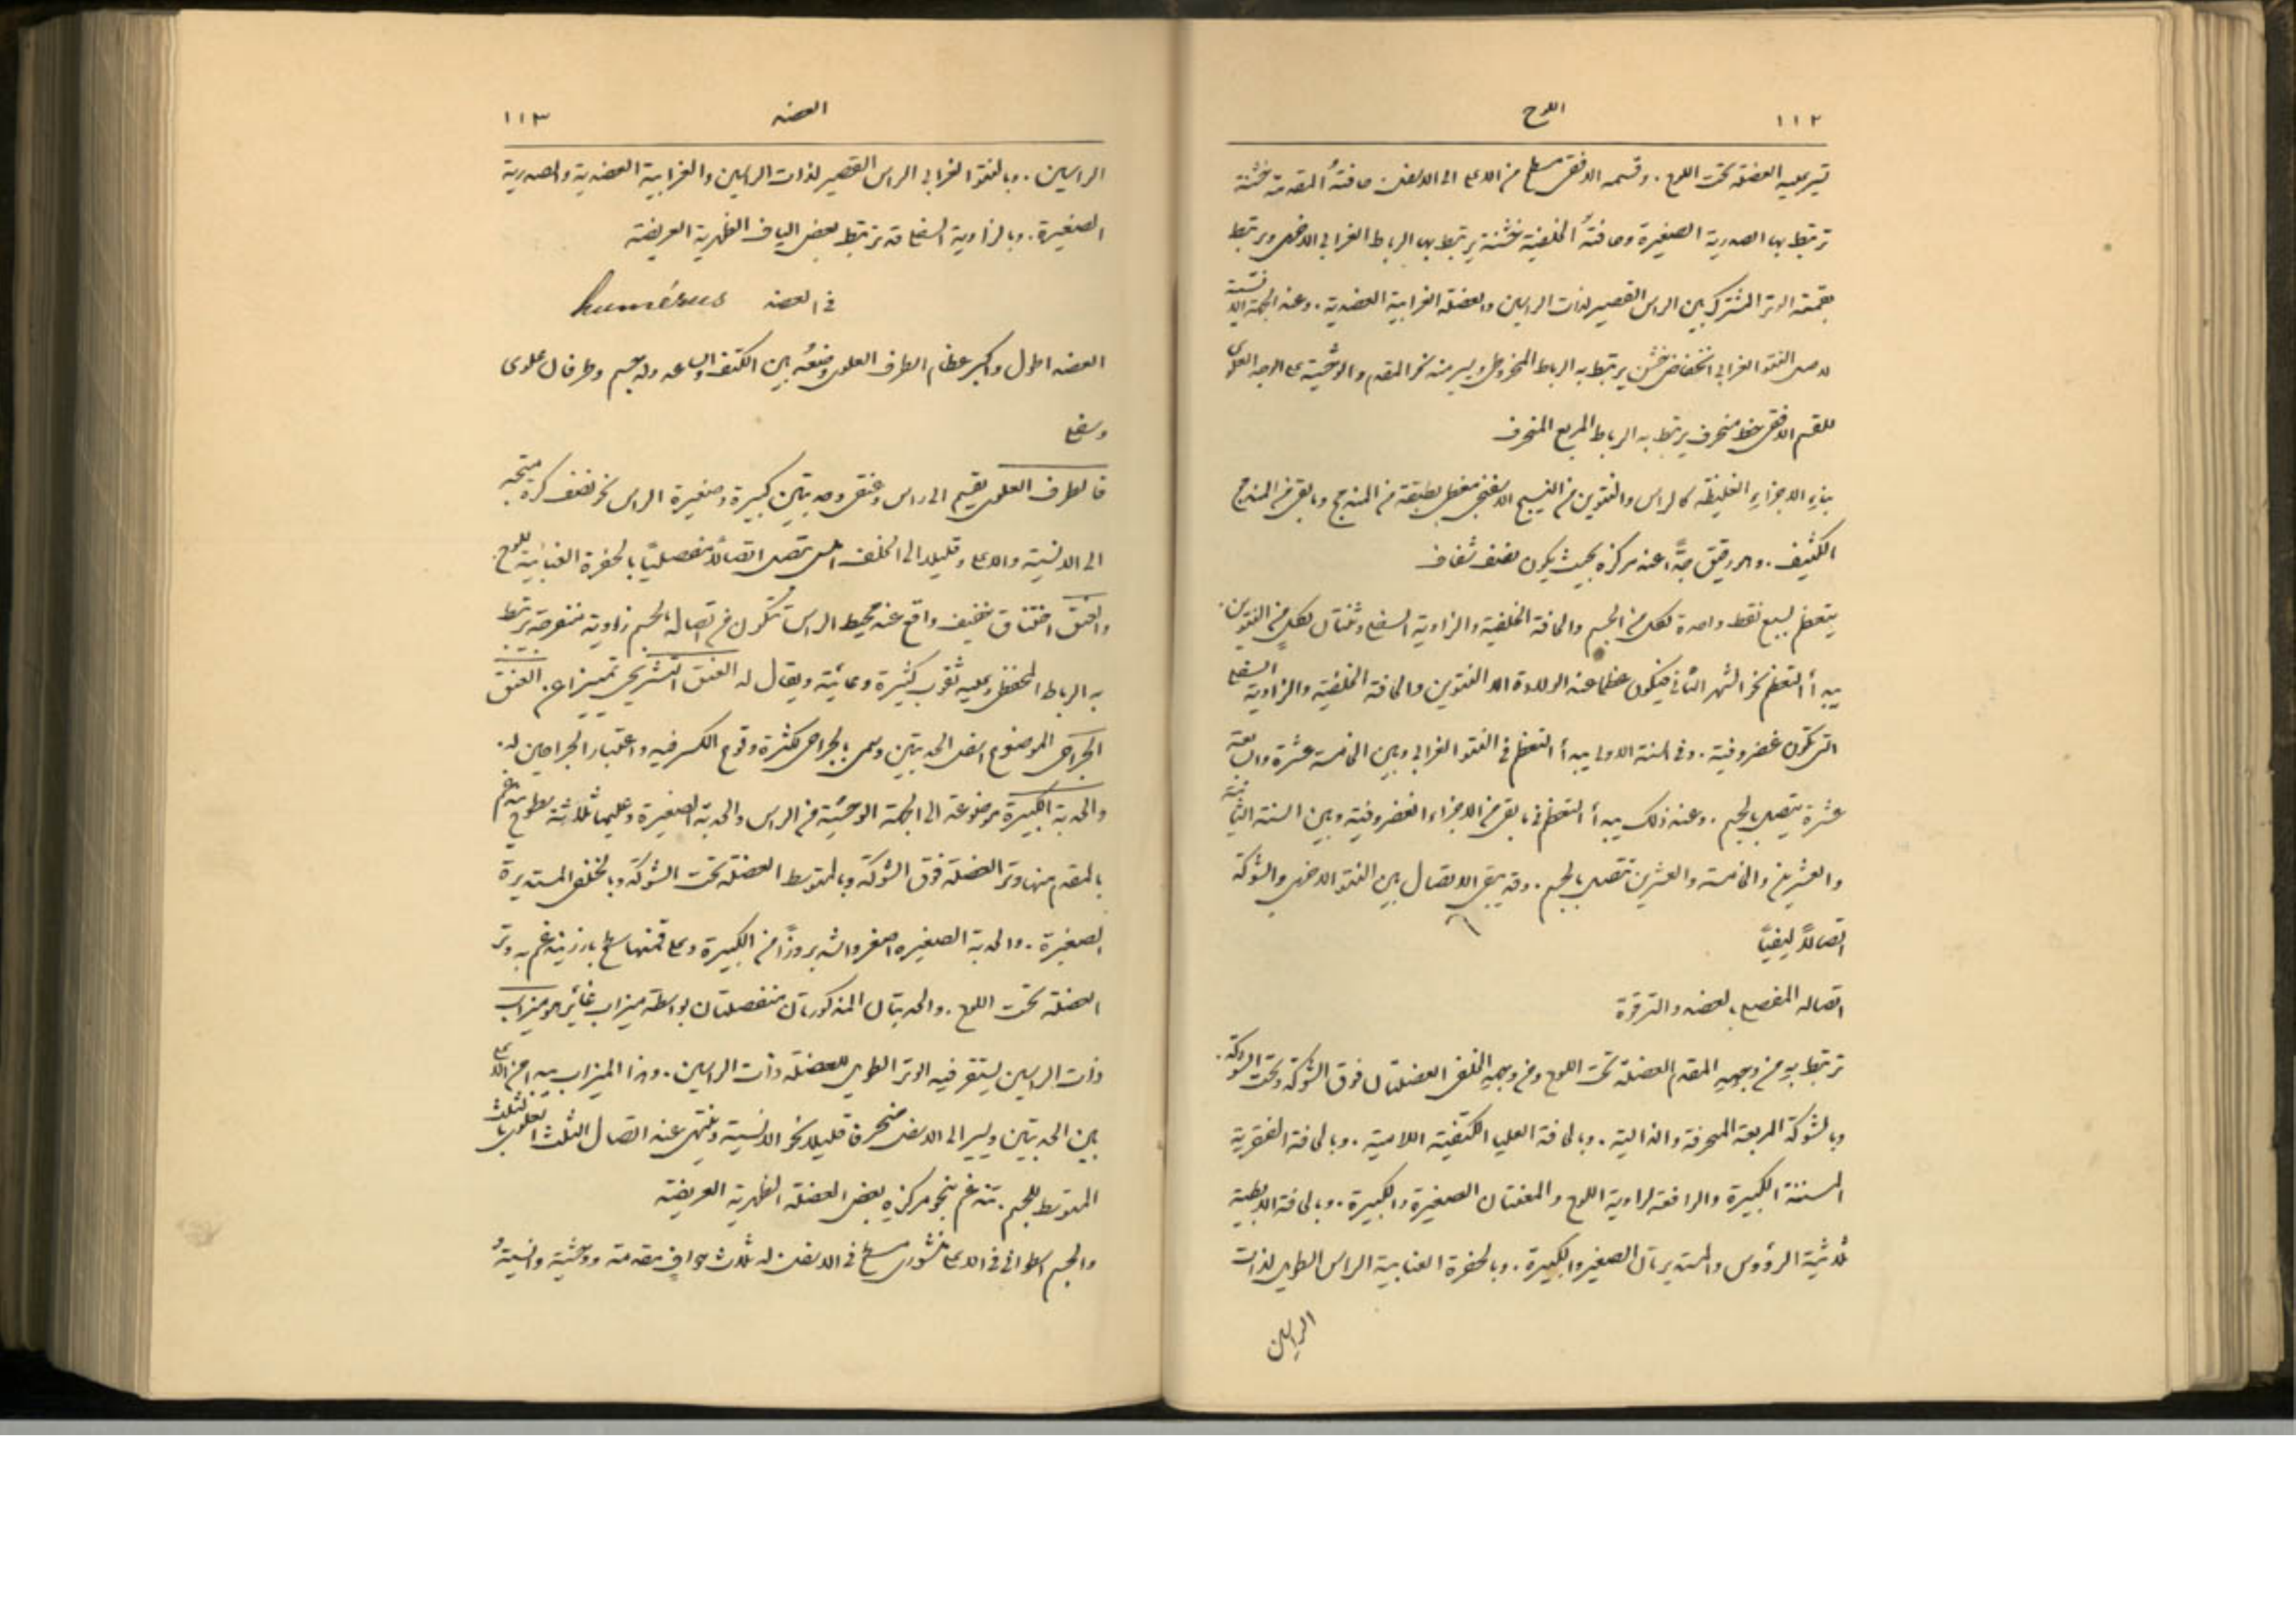 ١١٢ اللوح
تسير عليه العضلة تحت اللوح . وقسمه الافقي مسطح من الاعلى الى الاسفل حافتهُ المقدمة خشنة
ترتبط بها الصدرية الصغيرة وحافتهُ الخلفية خشنة يرتبط بها الرباط الغرابي الاخرمي ويرتبط
بقمته الوتر المشترك بين الراس القصير لذات الراسين والعضلة الغرابية العضدية . وعند الجهة الانسية
لاصل النتوء الغرابي انخفاض خشن يرتبط به الرباط المخروطي ويسير منه نحو المقدم والوحشية على الوجه العلوي
للقسم الافقي خط منحرف يرتبط به الرباط المربع المنحرف
بناءِ الاجزاءِ الغليظة كالراس والنتوين من النسيج الاسفنجي مغطى بطبقة من المندمج وما بقي من المندمج
الكثيف . وهو رقيق جدًّا عند مركزه بحيث يكون نصف شفاف
يتعظم لسبع نقط واحدة لكل من الجسم والحافة الخلفية والزاوية السفلى وثنتان لكل من النتوين .
يبدأ التعظم نحو الشهر الثاني فيكون عظما عند الولادة الا النتوين والحافة الخلفية والزاوية السفلى
التي تكون غضروفية . وفي السنة الاولى يبدأ التعظم في النتو الغرابي وبين الخامسة عشرة والسابعة
عشرة يتصل بالجسم . وعند ذلك يبدأ التعظم في ما بقي من الاجزاء الغضروفية وبين السنة الثانية
والعشرين والخامسة والعشرين تتصل بالجسم . وقد يبقى الاتصال بين النتو الاخرمي والشوكة
اتصالاً ليفيًّا
اتصاله المفصلي بالعضد والترقوة
ترتبط به من وجههِ المقدم العضلة تحت اللوح ومن وجههِ الخلفي العضلتان فوق الشوكة وتحت الشوكة .
وبالشوكة المربعة المنحرفة والدالية . وبالحافة العليا الكتفية اللامية . وبالحافة الفقرية
المسننة الكبيرة والرافعة لزاوية اللوح والمعينتان الصغيرة والكبيرة . وبالحافة الابطية
ثلاثية الرؤوس والمستديرتان الصغيرة والكبيرة . وبالحفرة العنابية الراس الطويل لذات
الراسين
العضد ١١٣
الراسين . وبالنتو الغرابي الراس القصير لذات الراسين والغرابية العضدية والصدرية
الصغيرة . وبالزاوية السفلى قد ترتبط بعض الياف الظهرية العريضة
في العضد humérus
العضد اطول واكبر عظام الطرف العلوي وضعهُ بين الكتف والساعد وله جسم وطرفان علوي
وسفلي
فالطرف العلوي يقسم الى راس وعنق وحدبتين كبيرة وصغيرة الراس نحو نصف كرة متجه
الى الانسية والاعلى وقليلا الى الخلف املس يتصل اتصالاً مفصليًّا بالحفرة العنابية للوح .
والعنق اختناق خفيف واقع عند محيط الراس تتكون من اتصاله بالجسم زاوية منفرجة يرتبط
به الرباط المحفظي وعليه ثقوب كثيرة وعائية ويقال له العنق التشريحي تمييزا عن العنق
الجراحي الموضوع اسفل الحدبتين وسمي بالجراحي لكثرة وقوع الكسر فيه واعتبار الجراحين له .
والحدبة الكبيرة موضوعة الى الجهة الوحشية من الراس والحدبة الصغيرة وعليها ثلاثة سطوح يندغم
بالمقدم منها وتر العضلة فوق الشوكة وبالمتوسط العضلة تحت الشوكة وبالخلفي المستديرة
الصغيرة . والحدبة الصغيره اصغر واشد بروزًا من الكبيرة وعلى قمتها سطح بارز يندغم به وتر
العضلة تحت اللوح . والحدبتان المذكورتان منفصلتان بواسطة ميزاب غائر هو ميزاب
ذات الراسين يستقر فيه الوتر الطويل للعضلة ذات الراسين . وهذا الميزاب يبدا من الاعلى
بين الحدبتين ويسير الى الاسفل منحرفا قليلا نحو الانسية وينتهي عند اتصال الثلث العلوي بالثلث
المتوسط للجسم . تندغم بنحو مركزه بعض العضلة الظهرية العريضة
والجسم اسطواني في الاعلى منشوري مسطح في الاسفل له ثلاث حوافٍ مقدمة ووحشية وانسيةُ